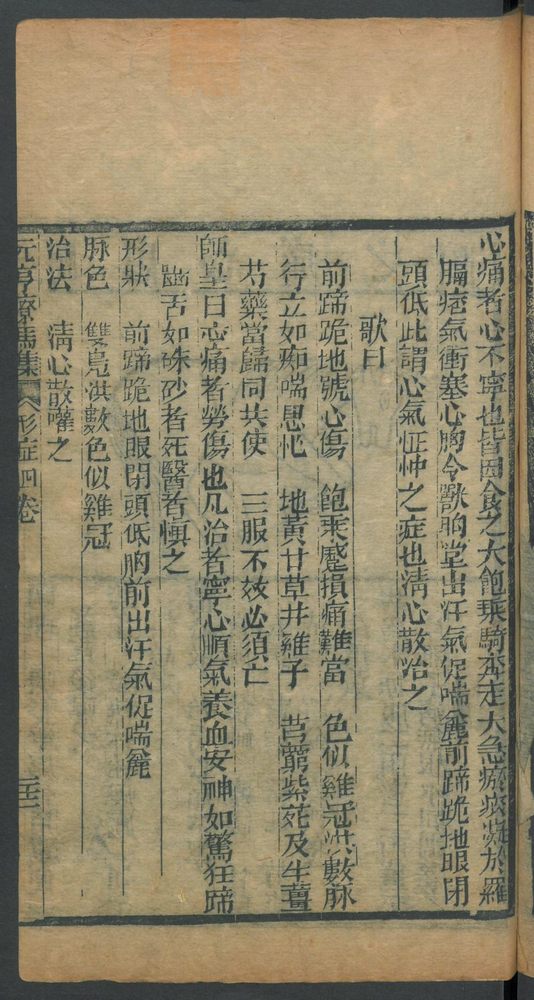 心痛者心不寧也皆因食之太飽乘騎奔走太急瘀痰凝於羅
膈痞氣衝塞心胸令獸胸堂出汗氣促喘麄前蹄跪地眼閉
頭低此謂心氣怔忡之症也淸心散治之
歌曰
前蹄跪地號心傷 飽乘蹙損痛難當 色似雞冠洪數脉
行立如痴喘思忙 地黄甘草井雞子 芎藭紫菀及生薑
芍藥當歸同共使 三服不效必須亡
師皇曰心痛者勞傷也凡治者寧心順氣養血安神如驚狂蹄
齒舌如硃砂者死醫者愼之
形狀 前蹄跪地眼閉頭低胸前出汗氣促喘麄
脉色 雙鳧洪數色似雞冠
治法 淸心散嚾之
元亨療馬集 形症四卷